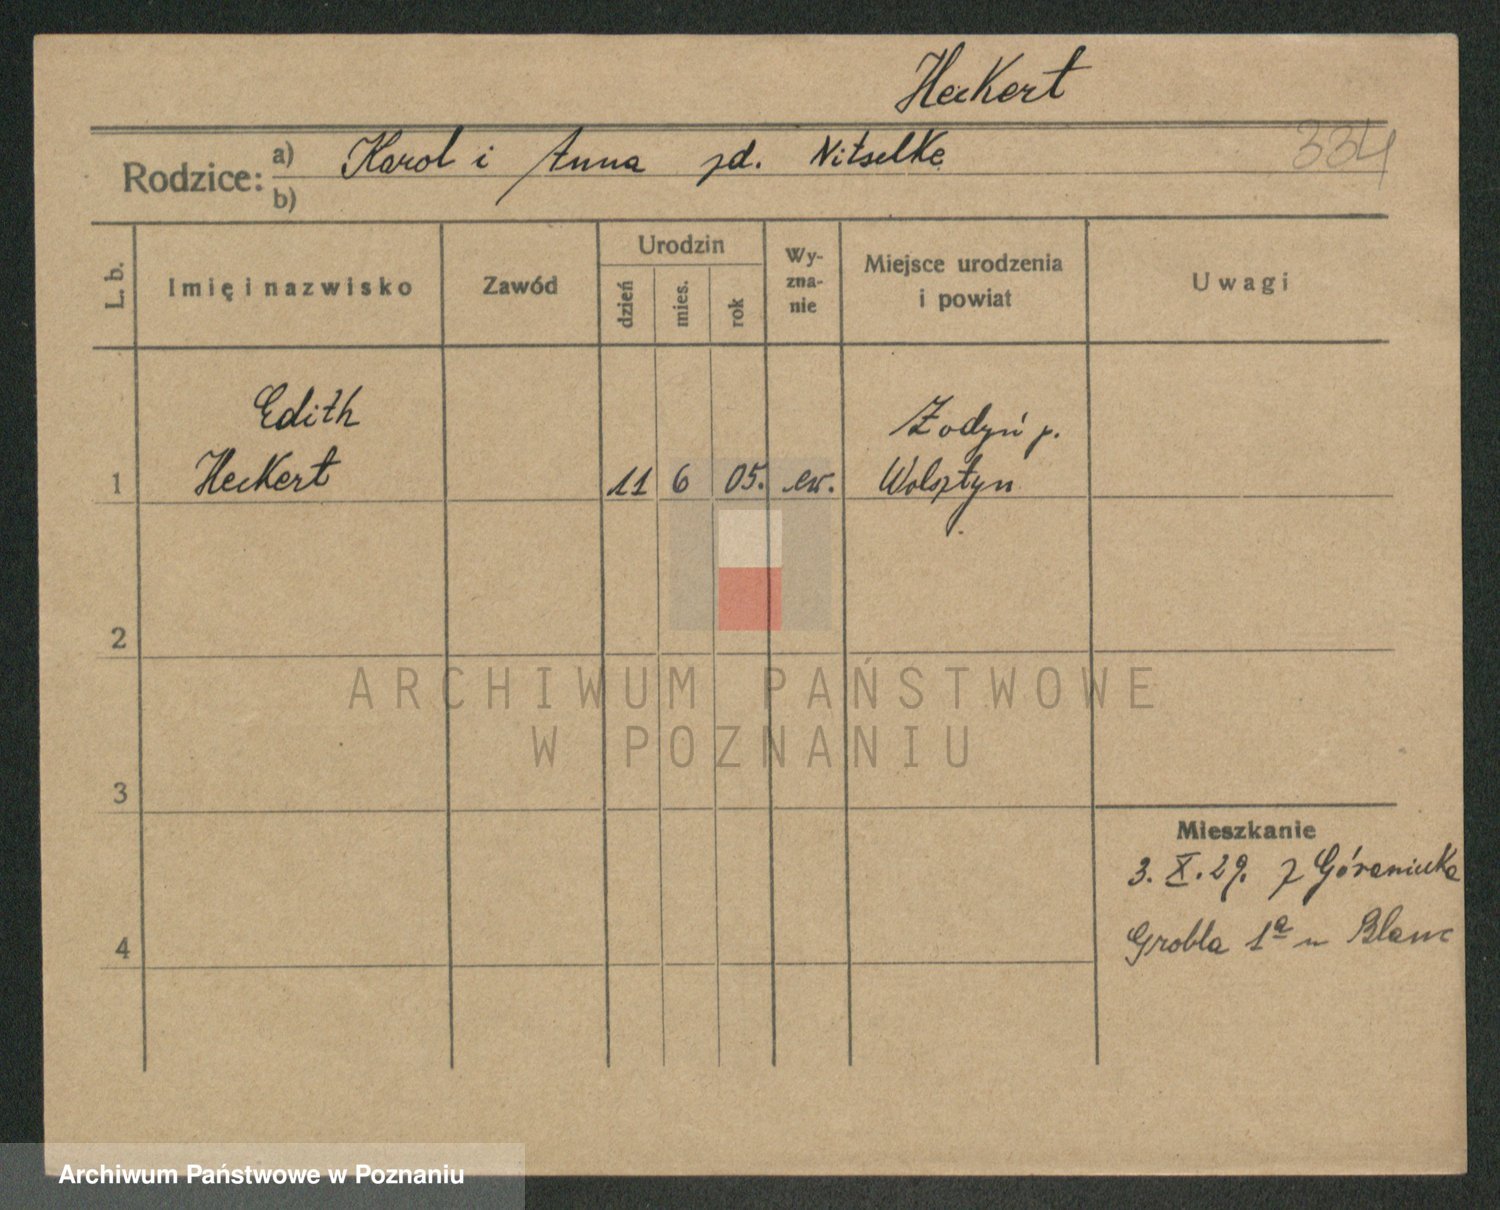 Heckert
334
Rodzice: a) Karol i Anna zd. Nitselke
b)
L. b.
Imię i nazwisko
Zawód
Urodzin
dzień
mies.
rok
Wy-
zna-
nie
Miejsce urodzenia
i powiat
Uwagi
Edith
Heckert
1
11 6 05. ew.
Żodyń p.
Wolsztyn
2
3
4
Mieszkanie
3. X. 29. z
Grobla 1a u Blanc
ARCHIWUM PAŃSTWOWE
W POZNANIU
Archiwum Państwowe w Poznaniu